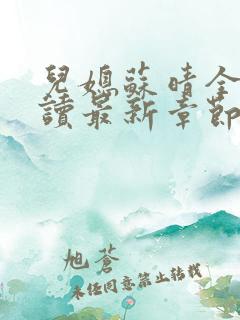 兒媳蘇晴全
讀最新章節
旭蒼
未經同意禁止轉載